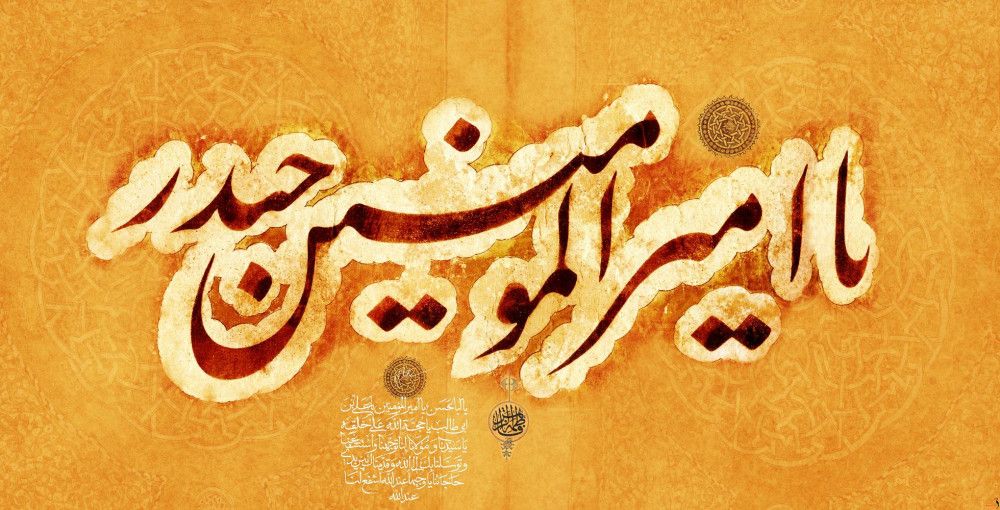 یا امیرالمومنین حیدر
یا ابا الحسن یا امیر المؤمنین یا علی ابن
ابی طالب یا حجة الله علی خلقه
یا سیدنا و مولانا انا توجهنا و استشفعنا
و توسلنا بک الی الله و قدمناک بین یدی
حاجاتنا یا وجیها عند الله اشفع لنا
عند الله